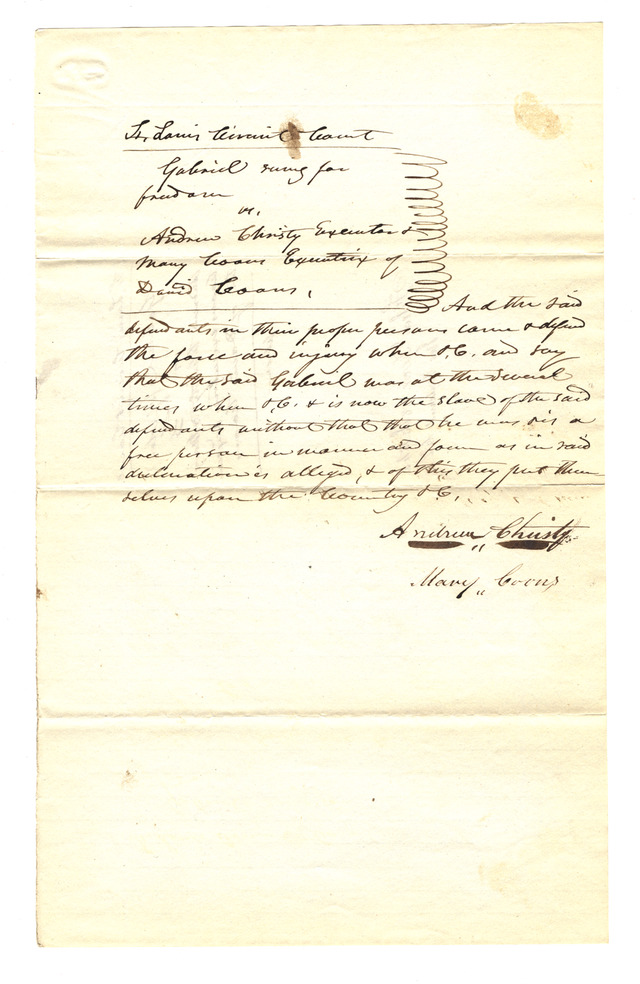 St Louis Circuit Court
Gabriel suing for
freedom
vs.
Andrew Christy Executor &
Mary Coons Executrix of
David Coons,
And the said
defendants in their proper persons come & defend
the force and injury when &C. and say
that the said Gabriel was at the several
times when &C. & is now the slave of the said
defendants without that that he was or is a
free person in manner and form as in said
declaration is alleged, & of this they put them
selves upon the Country &C,
Andrew Christy
Mary Coons